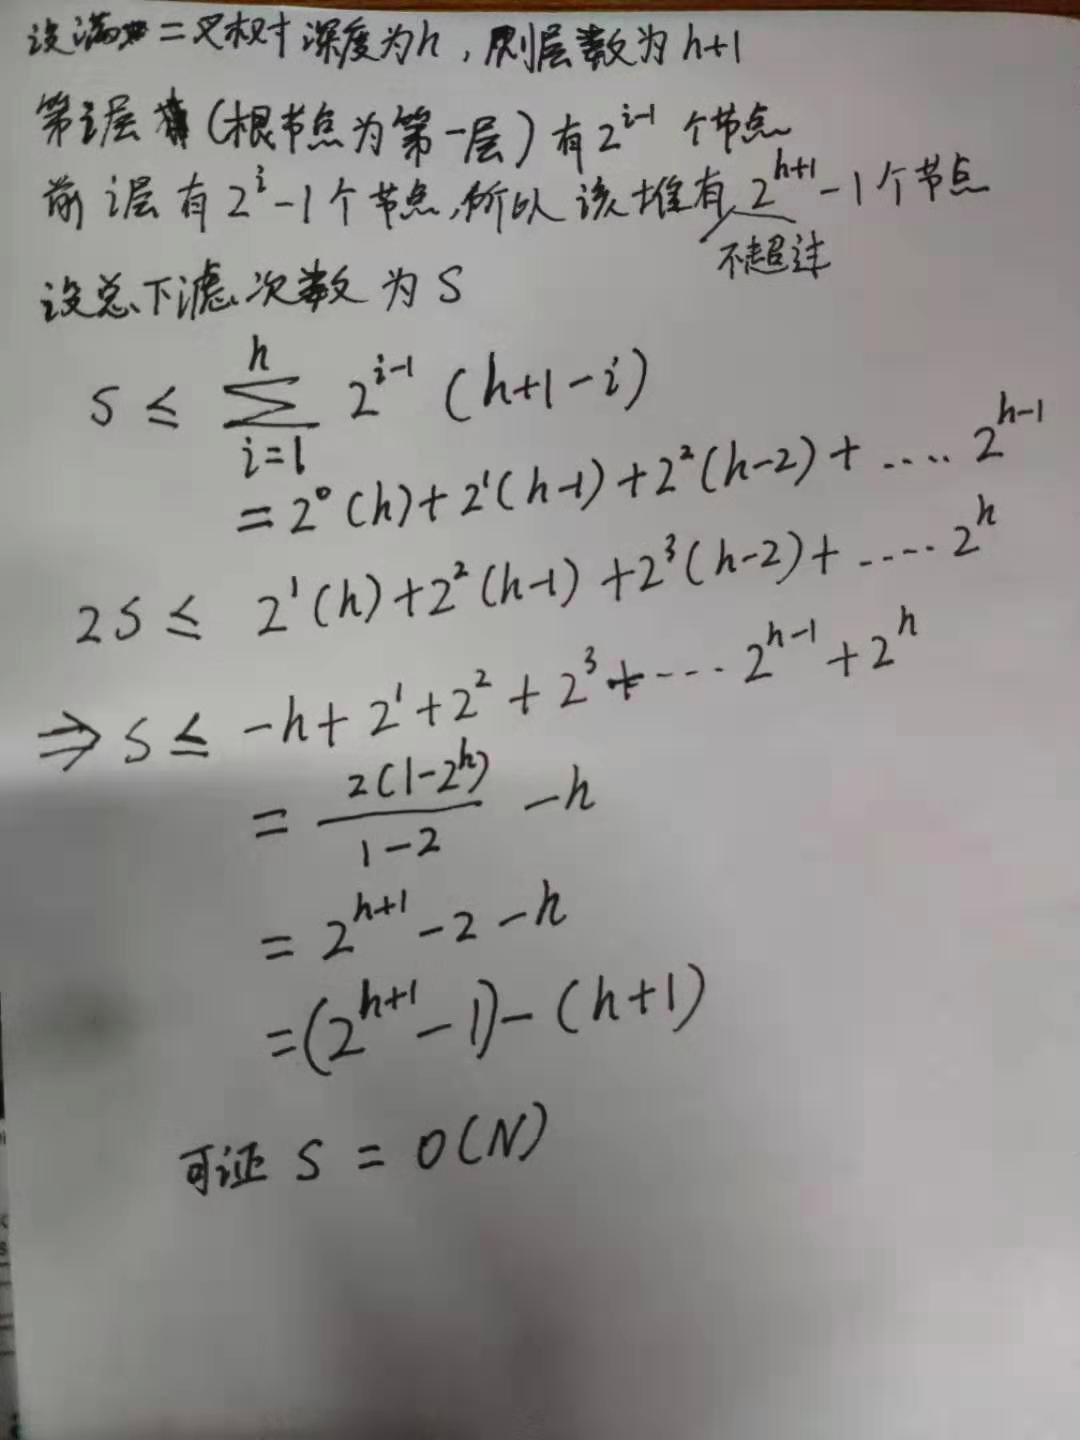 设满二叉树深度为h，则层数为h+1
第i层（根节点为第一层）有2^{i-1}个节点
前i层有2^i-1个节点，所以该堆有2^{h+1}-1个节点
不超过
设总下滤次数为S
S ≤ \sum_{i=1}^{h} 2^{i-1} (h+1-i)
= 2^0(h)+2^1(h-1)+2^2(h-2)+.... 2^{h-1}
2S ≤ 2^1(h)+2^2(h-1)+2^3(h-2)+..... 2^h
⇒ S ≤ -h+2^1+2^2+2^3+... 2^{h-1}+2^h
= \frac{2(1-2^h)}{1-2} -h
= 2^{h+1}-2-h
=(2^{h+1}-1)-(h+1)
可证 S = O(N)